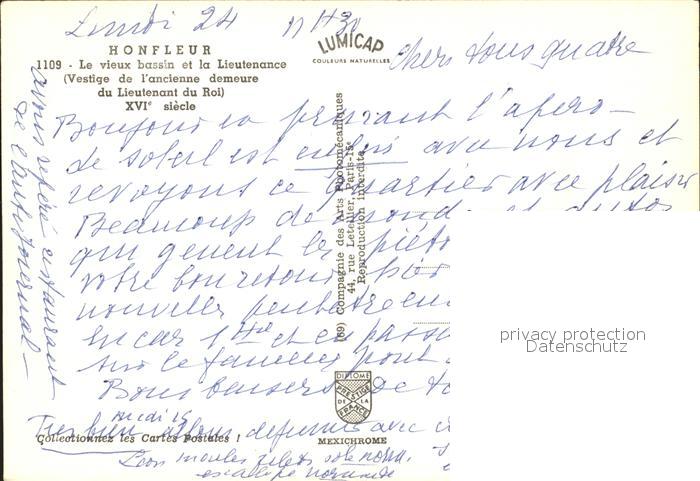 Lundi 24 11H30
HONFLEUR
1109 - Le vieux bassin et la Lieutenance
(Vestige de l'ancienne demeure
du Lieutenant du Roi)
XVIe siècle
LUMICAP
COULEURS NATURELLES
Chers tous quatre
Bonjour en prenant l'apero -
Le soleil est enfin avec nous et
revoyons ce quartier avec plaisir
Beaucoup de monde et autos
qui genent les piéto
votre bon retour hier
nouvelles peut être en
en car 1 et en passa
sur le fameux pont
Bons baisers de to
midi 15
Tres bien allons dejeuner avec
moules filets sole norm.
escalope normande
avons repéré restaurant
de l'auto journal -
(69) Compagnie des Arts Photomécaniques
44, rue Letellier, Paris-15e
Reproduction interdite
DIPLOME
PRESTIGE
DE LA
FRANCE
Collectionnez les Cartes Postales !
MEXICHROME
privacy protection
Datenschutz